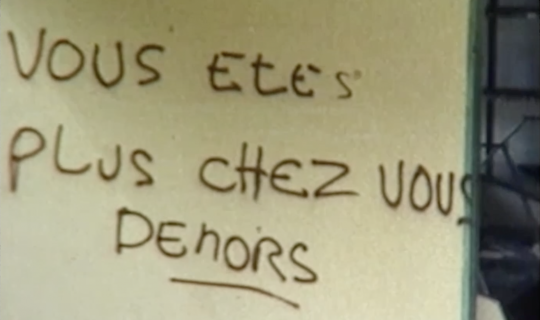 VOUS EtES
PLUS CHEZ VOUS
DEHORS